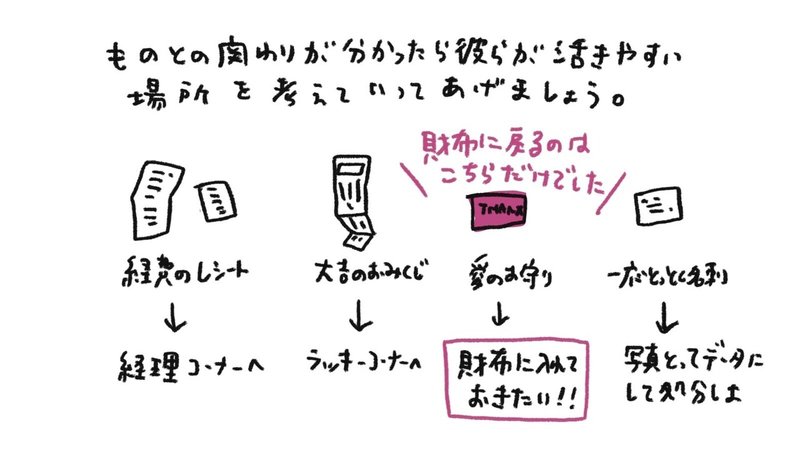 ものとの関わりが分かったら彼らが活きやすい
場所を考えていってあげましょう。
財布に戻るのは
こちらだけでした
THANX
経費のレシート
大吉のおみくじ
愛のお守り
一応とっとく名刺
経理コーナーへ
ラッキーコーナーへ
財布に入れて
おきたい!!
写真とってデータに
して処分しよ